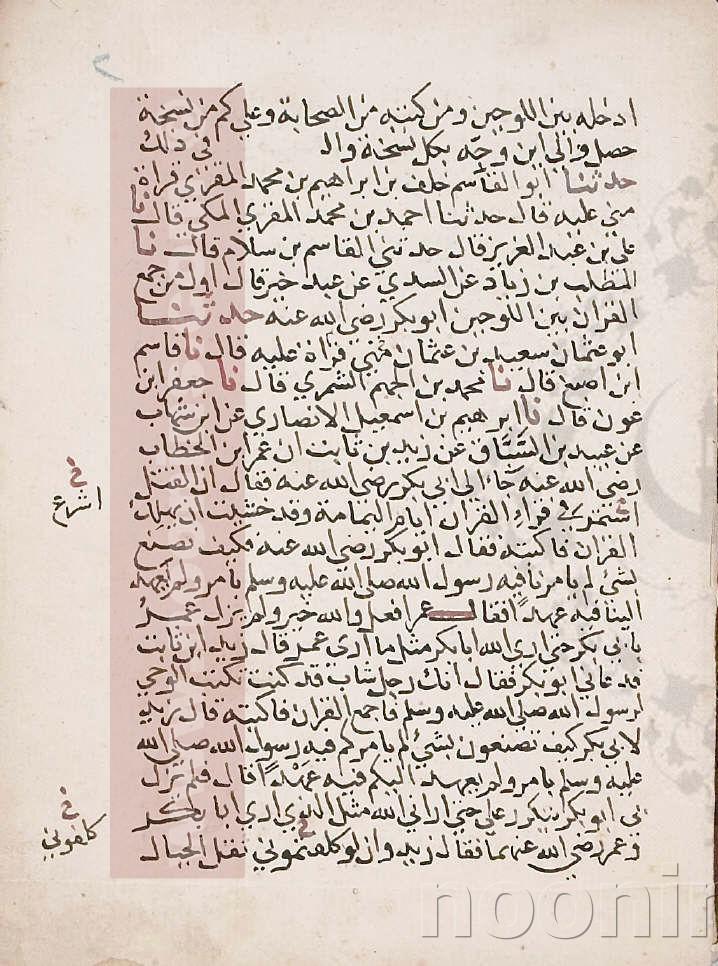 ادخله بين اللوحين ومن كتبه من الصحابة وعلى كم من نسخة
حصل والى اين وجه بكل نسخة وال في ذلك
حدثنا ابو القاسم خلف بن ابراهيم بن محمد المقرئ قراة
مني عليه قال حدثنا احمد بن محمد المقرئ المكي قال نا
علي بن عبد العزيز قال حدثني القاسم بن سلام قال نا
المطلب بن زياد عن السدي عن عبد خير قال اول من جمع
القران بين اللوحين ابو بكر رضي الله عنه حدثنا
ابو عثمان سعيد بن عثمان مني قراة عليه قال نا قاسم
ابن اصبغ قال نا محمد بن الجهم الشمري قال نا جعفر ابن
عون قال نا ابرهيم بن اسمعيل الانصاري عن ابن شهاب
عن عبيد بن السباق عن زيد بن ثابت ان عمر ابن الخطاب
رضي الله عنه جاء الى ابي بكر رضي الله عنه فقال ان القتل
استحر في قراء القران ايام اليمامة وقد خشيت ان يهلك
القران فاكتبه فقال ابو بكر رضي الله عنه فكيف نصنع
بشئ لم يامرنا فيه رسول الله صلى الله عليه وسلم بامر ولم يعهد
الينا فيه عهدا فقال عمر افعل والله خير ولم يزل عمر
بابي بكر حتى ارى الله ابا بكر مثل ما ارى عمر قال زيد ابن ثابت
فدعاني ابو بكر فقال انك رجل شاب قد كنت تكتب الوحي
لرسول الله صلى الله عليه وسلم فاجمع القران فاكتبه قال زيد
لابي بكر كيف تصنعون بشئ لم يامركم فيه رسول الله صلى الله
عليه وسلم بامر ولم يعهد اليكم فيه عهدا قال فلم يزل
بي ابو بكر يكرر علي حتى اراني الله مثل الذي ارى ابا بكر
وعمر رضي الله عنهما فقال زيد وان لو كلفتموني نقل الجبال
خ
خ
كلفوني
noonir